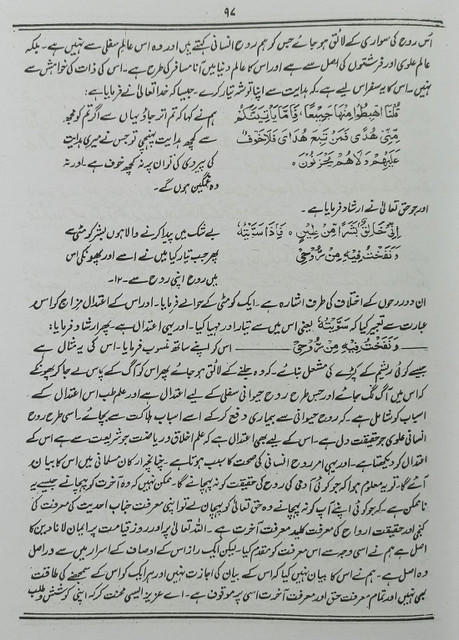 ۹۷
اُس روح کی سواری کے لائق ہو جائے جس کو ہم روح انسانی کہتے ہیں اور وہ اس عالم سفلی سے نہیں ہے۔ بلکہ
عالم علوی اور فرشتوں کی اصل سے ہے اور اس کا عالم دنیا میں آنا مسافر کی طرح ہے۔ اس کی ذات کی خواہش سے
نہیں۔ اس کا یہ سفر اس لیے ہے کہ ہدایت سے اپنا توشہ تیار کرے۔ جیسا کہ خدا تعالیٰ نے فرمایا ہے:
قُلْنَا اهْبِطُوْا مِنْهَا جَمِيْعًا، فَاِمَّا يَاْتِيَنَّكُمْ
مِّنِّيْ هُدًى فَمَنْ تَبِعَ هُدَايَ فَلَا خَوْفٌ
عَلَيْهِمْ وَلَا هُمْ يَحْزَنُوْنَ ہ
ہم نے کہا کہ تم اتر جاؤ یہاں سے اگر تم کو مجھ
سے کچھ ہدایت پہنچی تو جس نے میری ہدایت
کی پیروی کی تو ان پر نہ کچھ خوف ہے۔ اور نہ
وہ غمگین ہوں گے۔
اور جو حق تعالیٰ نے ارشاد فرمایا ہے۔
اِنِّيْ خَالِقٌ بَشَرًا مِّنْ طِيْنٍ ہ فَاِذَا سَوَّيْتُهٗ
وَنَفَخْتُ فِيْهِ مِنْ رُّوْحِيْ
بے شک میں پیدا کرنے والا ہوں بشر کو مٹی سے
پھر جب تیار کیا میں نے اسے اور پھونکی اس
میں روح اپنی روح سے۔ ۱۲۔
ان دو روحوں کے اختلاف کی طرف اشارہ ہے۔ ایک کو مٹی کے حوالے فرمایا۔ اور اس کے اعتدال مزاج کو اس
عبارت سے تعبیر کیا کہ سَوَّيْتُهٗ یعنی اس میں سے تیار اور مہیا کیا۔ اور یہی اعتدال ہے۔ پھر ارشاد فرمایا:
وَنَفَخْتُ فِيْهِ مِنْ رُّوْحِيْ ـــــــ اس کو اپنے ساتھ منسوب فرمایا۔ اس کی مثال ہے
جیسے کوئی ریشم کے کپڑے کی مشعل بنائے۔ کہ وہ جلنے کے لائق ہو جائے پھر اس کو آگ کے پاس لے جا کر پھونکے
کہ اس میں آگ لگ جائے اور جس طرح روح حیوانی سفلی کے لیے اعتدال ہے اور علم طب اس اعتدال کے
اسباب کو شامل ہے۔ کہ روح حیوانی سے بیماری دفع کر کے اسے اسباب ہلاکت سے بچائے۔ اسی طرح روح
انسانی علوی جو حقیقت دل ہے۔ اس کے لیے بھی اعتدال ہے کہ علم اخلاق و ریاضت جو شریعت سے ہے اس کے
اعتدال کو دیکھتا ہے۔ اور یہی امر روح انسانی کی صحت کا سبب ہوتا ہے۔ چنانچہ ارکان مسلمانی میں اس کا بیان
آئے گا۔ تو یہ معلوم ہوا کہ جو کوئی آدمی کی روح کی حقیقت کو نہ پہچانے گا۔ ممکن نہیں کہ وہ آخرت کو پہچانے جیسے یہ
ناممکن ہے کہ جو کوئی اپنے آپ کو نہ پہچانے وہ حق تعالیٰ کو پہچان لے تو اپنی معرفت جناب احدیت کی معرفت کی
کنجی اور حقیقت ارواح کی معرفت کلید معرفت آخرت ہے۔ اللہ تعالیٰ پر اور روز قیامت پر ایمان لانا دین کا
اصل ہے ہم نے اسی وجہ سے اس معرفت کو مقدم کیا۔ لیکن ایک راز اس کے اوصاف کے اسرار میں سے در اصل
وہ اصل ہے۔ ہم نے اس کا بیان نہیں کیا کہ اس کے بیان کی اجازت نہیں اور ہر ایک کو اس کے سمجھنے کی طاقت
بھی نہیں اور تمام معرفت حق اور معرفت آخرت اسی پر موقوف ہے۔ اے عزیز ایسی محنت کر کہ اپنی کوشش و طلب